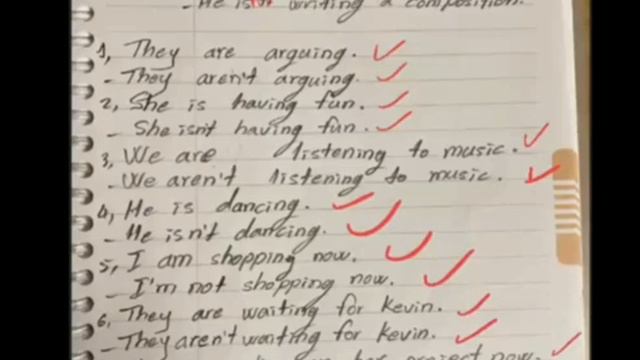 - He isn't writing a composition.
1, They are arguing.
- They aren't arguing.
2, She is having fun.
- She isn't having fun.
3, We are listening to music.
- We aren't listening to music.
4, He is dancing.
- He isn't dancing.
5, I am shopping now.
- I'm not shopping now.
6, They are waiting for Kevin.
- They aren't waiting for Kevin.
her project now.